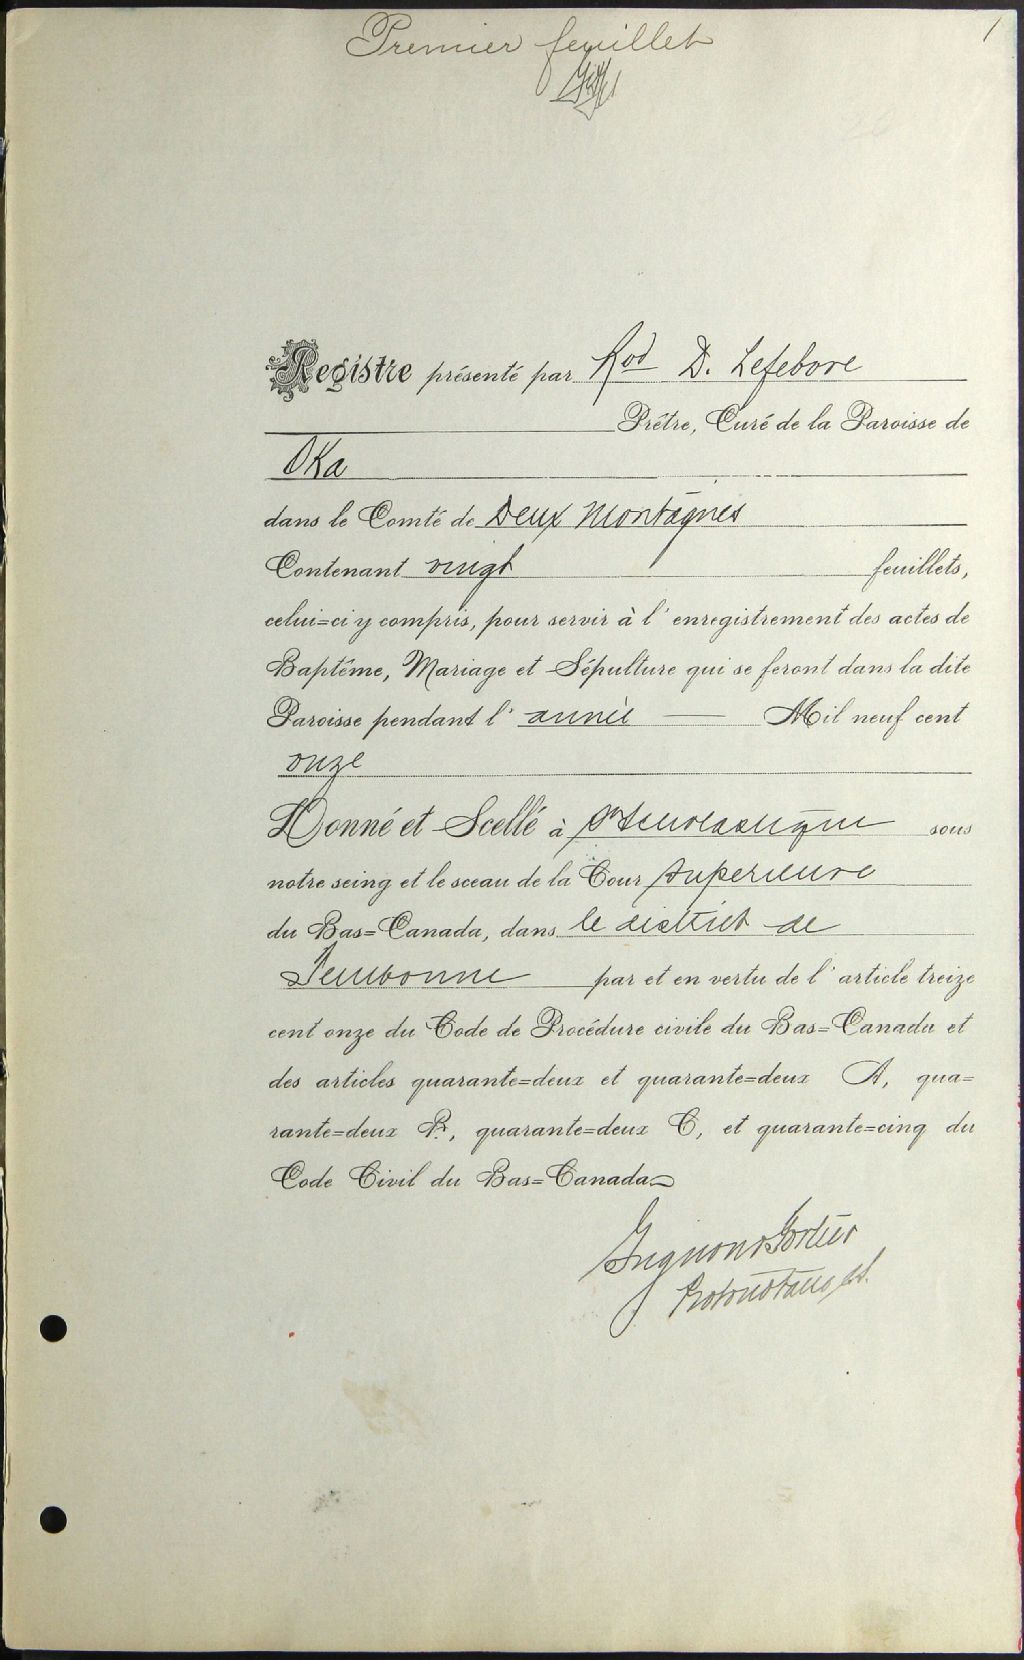 Premier feuillet
1
Registre présenté par Rvd D. Lefebvre
Prêtre, Curé de la Paroisse de
Oka
dans le Comté de Deux Montagnes
Contenant vingt feuillets,
celui=ci y compris, pour servir à l'enregistrement des actes de
Baptême, Mariage et Sépulture qui se feront dans la dite
Paroisse pendant l'année — Mil neuf cent
onze
Donné et Scellé à Ste Scholastique sous
notre seing et le sceau de la Cour Superieure
du Bas=Canada, dans le district de
Terrebonne par et en vertu de l'article treize
cent onze du Code de Procédure civile du Bas=Canada et
des articles quarante=deux et quarante=deux A, qua=
rante=deux B, quarante=deux C, et quarante=cinq du
Code Civil du Bas=Canada
Grignon & Fortier